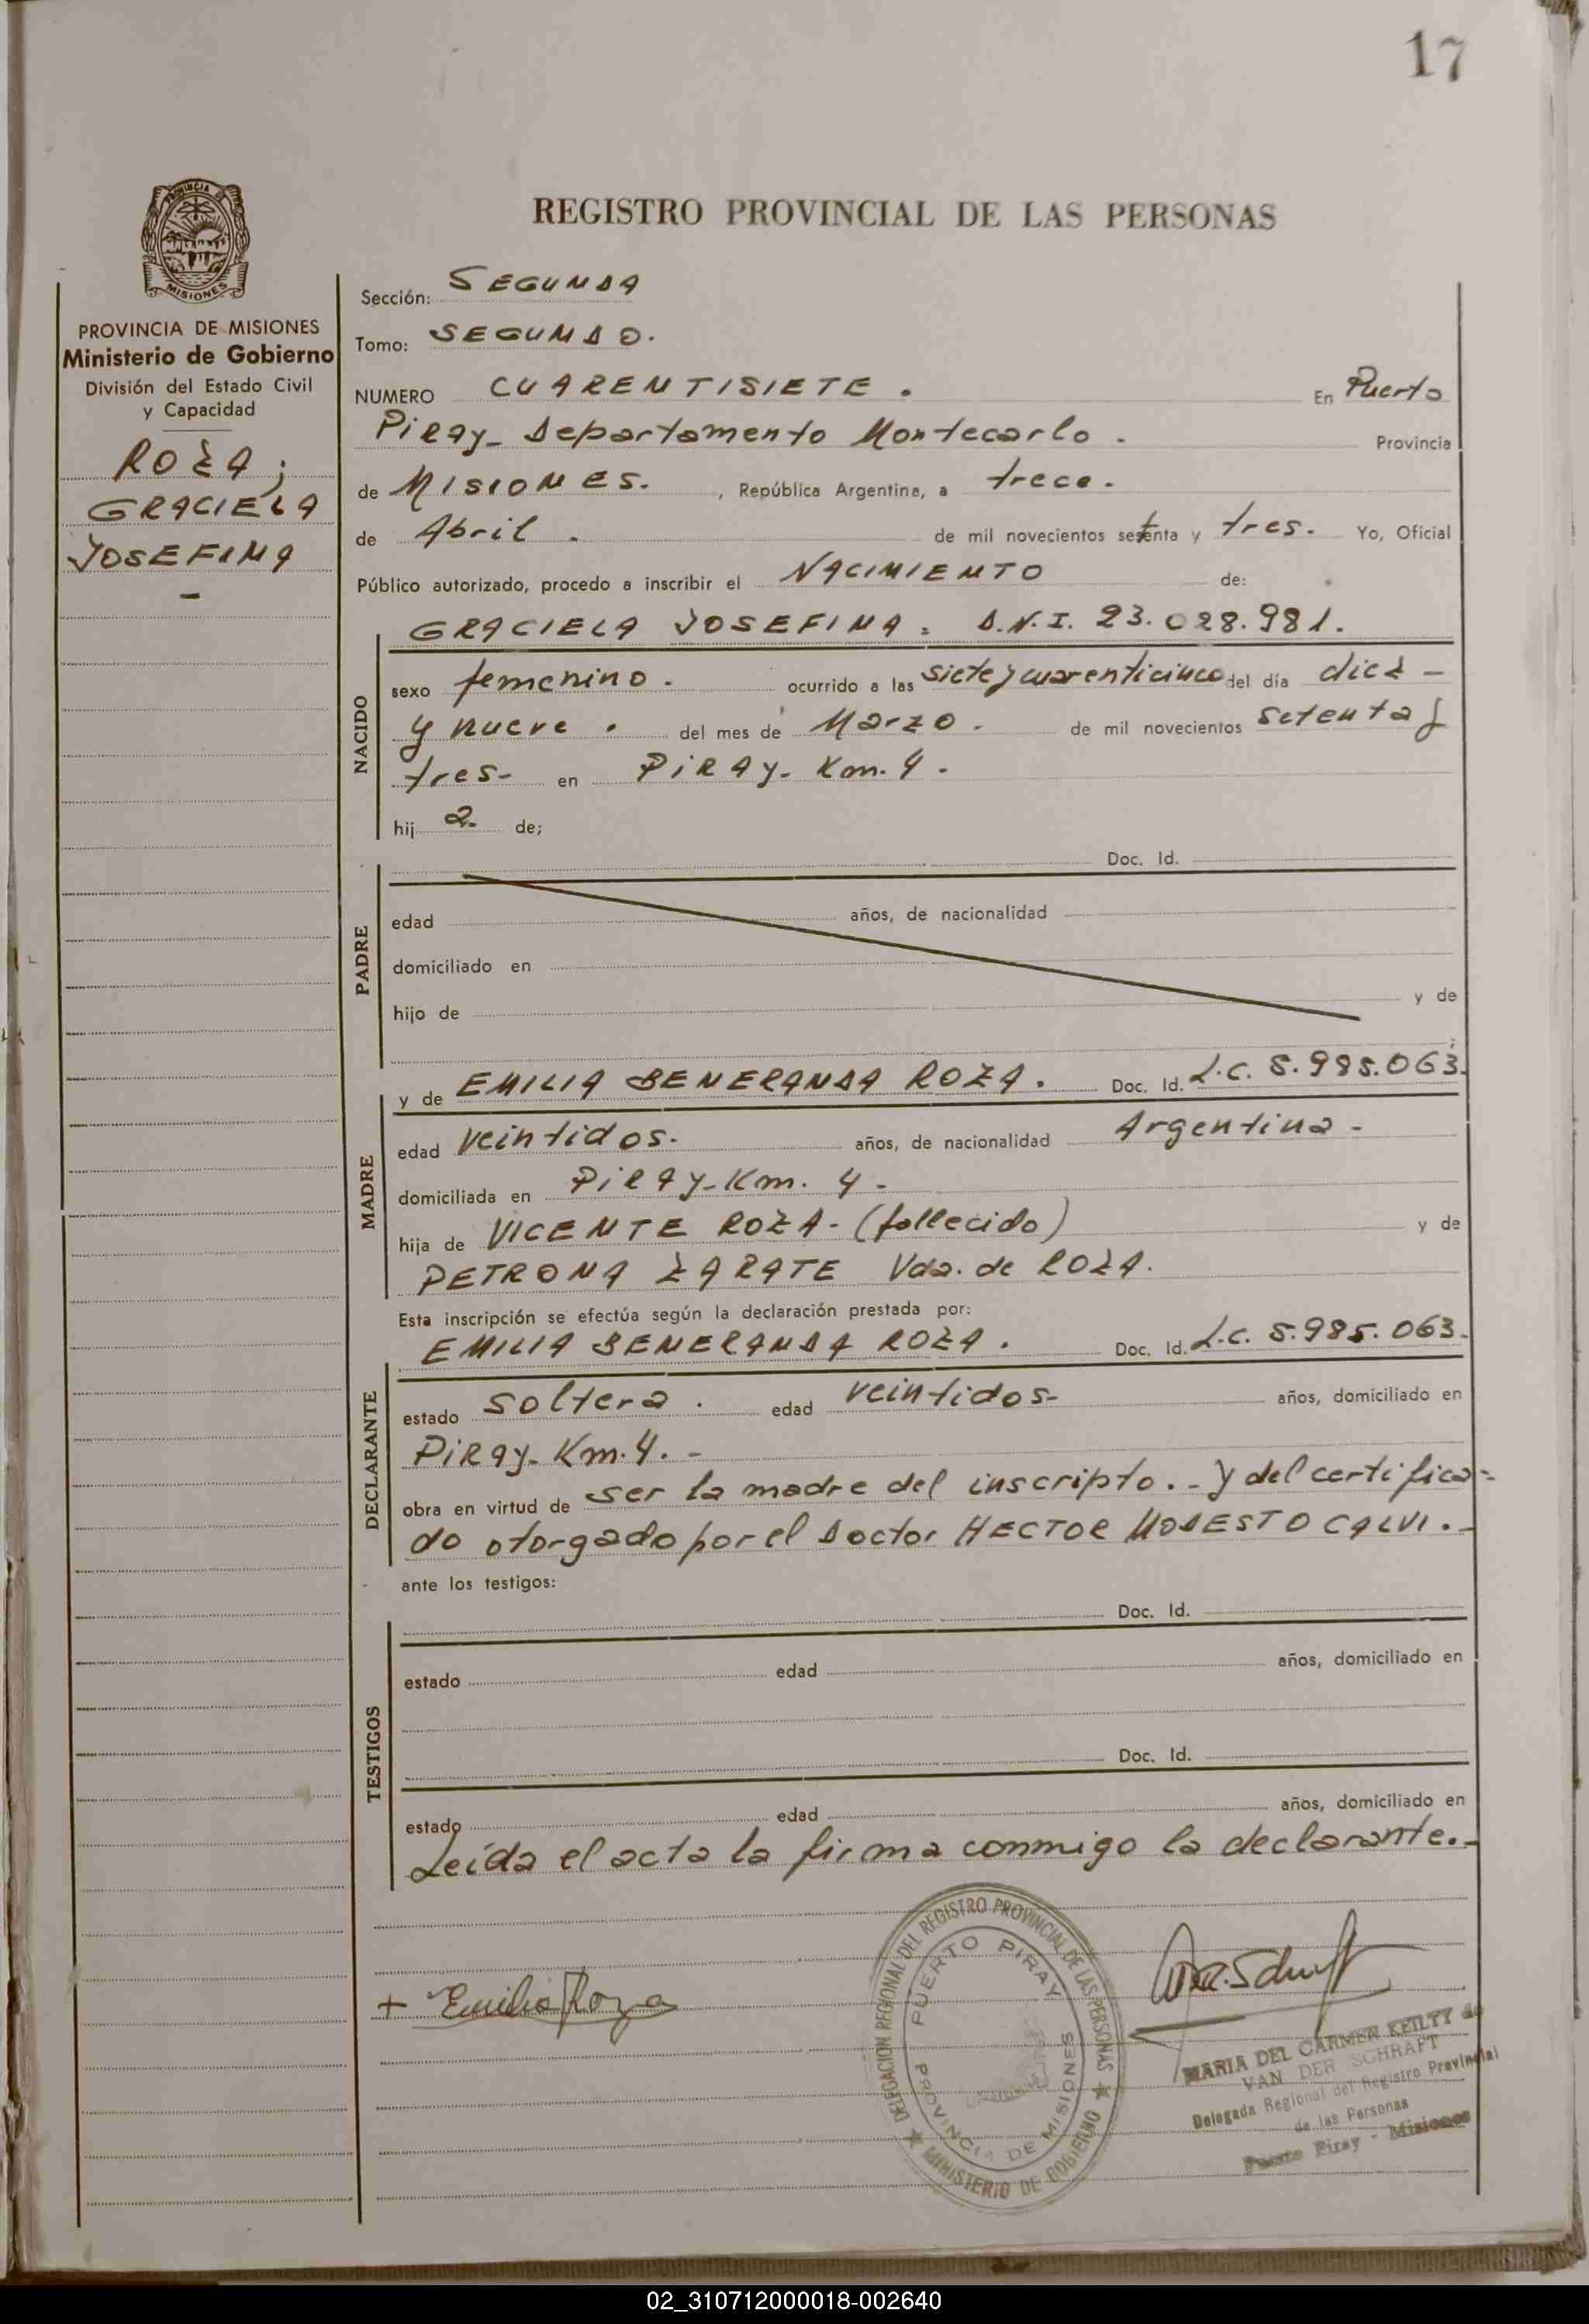 17
REGISTRO PROVINCIAL DE LAS PERSONAS
PROVINCIA DE MISIONES
Ministerio de Gobierno
División del Estado Civil
y Capacidad
ROZA;
GRACIELA
JOSEFINA
-
Sección: SEGUNDA
Tomo: SEGUNDO.
NUMERO CUARENTISIETE. En Puerto
Piray- Departamento Montecarlo. Provincia
de MISIONES. , República Argentina, a trece.
de Abril. de mil novecientos setenta y tres. Yo, Oficial
Público autorizado, procedo a inscribir el NACIMIENTO de:
GRACIELA JOSEFINA. D.N.I. 23.028.981.
NACIDO
sexo femenino. ocurrido a las siete y cuarenticinco del día diez -
y nueve. del mes de Marzo. de mil novecientos setenta y
tres- en PIRAY- Km. 4.
hij a de;
PADRE
Doc. Id.
edad años, de nacionalidad
domiciliado en
hijo de y de
MADRE
y de EMILIA BENERANDA ROZA. Doc. Id. L.C. 5.985.063.
edad veintidos. años, de nacionalidad Argentina-
domiciliada en PIRAY-Km. 4-
hija de VICENTE ROZA-(fallecido) y de
PETRONA ZARATE Vda. de ROZA.
Esta inscripción se efectúa según la declaración prestada por:
EMILIA BENERANDA ROZA. Doc. Id. L.C. 5.985.063.
DECLARANTE
estado soltera. edad veintidos- años, domiciliado en
PIRAY-Km.4.-
obra en virtud de ser la madre del inscripto.-Y del certifica=
do otorgado por el Doctor HECTOR MODESTO CALVI.-
ante los testigos:
TESTIGOS
Doc. Id.
estado edad años, domiciliado en
Doc. Id.
estado edad años, domiciliado en
Leída el acta la firma conmigo la declarante.-
+ Emilia Roza
DELEGACION REGIONAL DEL REGISTRO PROVINCIAL DE LAS PERSONAS
PUERTO PIRAY
PROVINCIA DE MISIONES
MINISTERIO DE GOBIERNO
MARIA DEL CARMEN KEILTY de
VAN DER SCHRAFT
Delegada Regional del Registro Provincial
de las Personas
Puerto Piray - Misiones
02_310712000018-002640